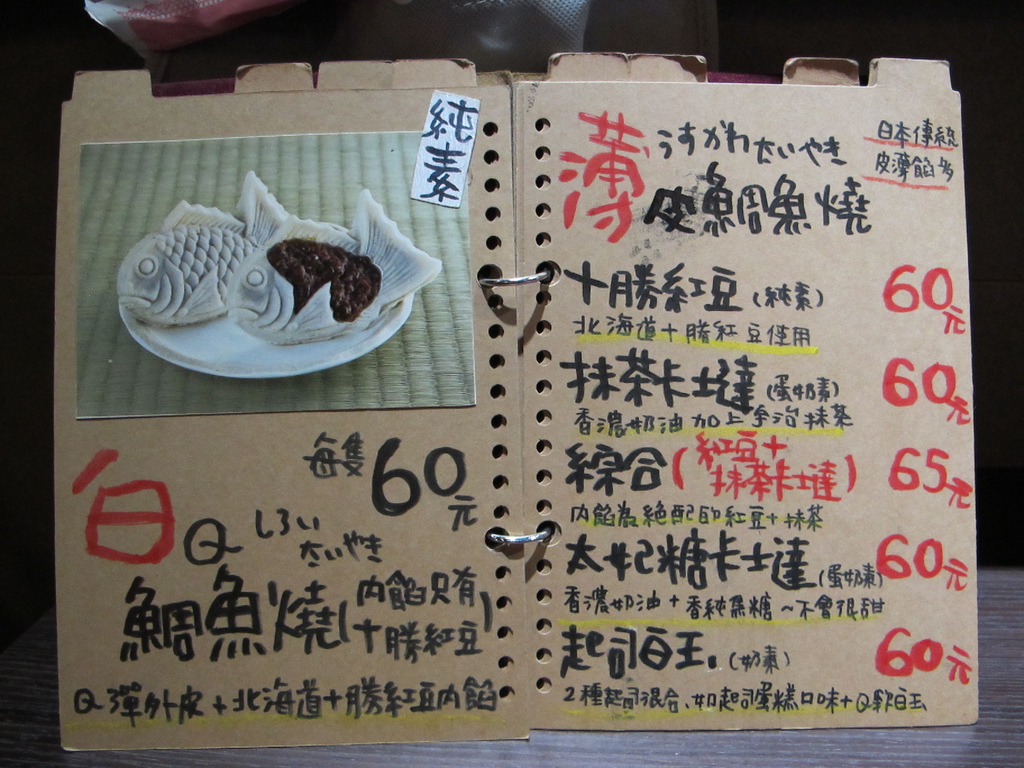 純素
每隻60元
白Q しろい
たいやき
鯛魚燒(內餡只有
十勝紅豆)
Q彈外皮+北海道十勝紅豆內餡
薄 うすかわたいやき
皮鯛魚燒
日本傳統
皮薄餡多
十勝紅豆(純素) 60元
北海道十勝紅豆使用
抹茶卡士達(蛋奶素) 60元
香濃奶油加上宇治抹茶
綜合(紅豆+
抹茶卡士達) 65元
內餡為絕配的紅豆+抹茶
太妃糖卡士達(蛋奶素) 60元
香濃奶油+香純焦糖~不會很甜
起司白玉.(奶素) 60元
2種起司混合、如起司蛋糕口味+Q軟白玉